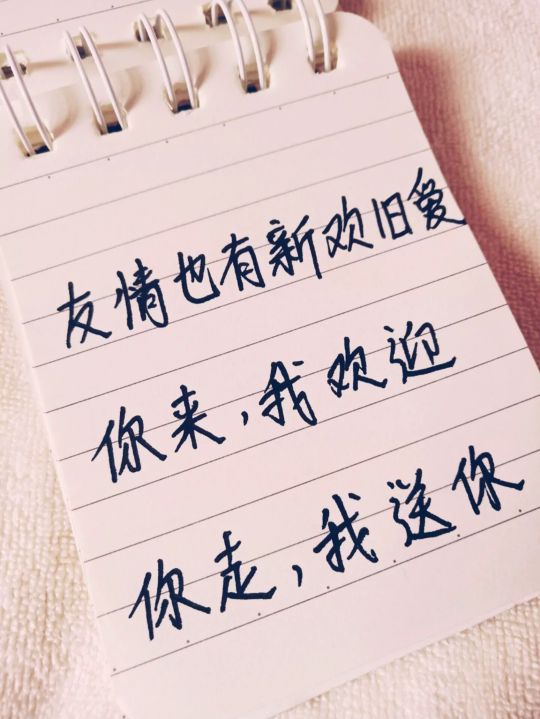 友情也有新欢旧爱
你来，我欢迎
你走，我送你